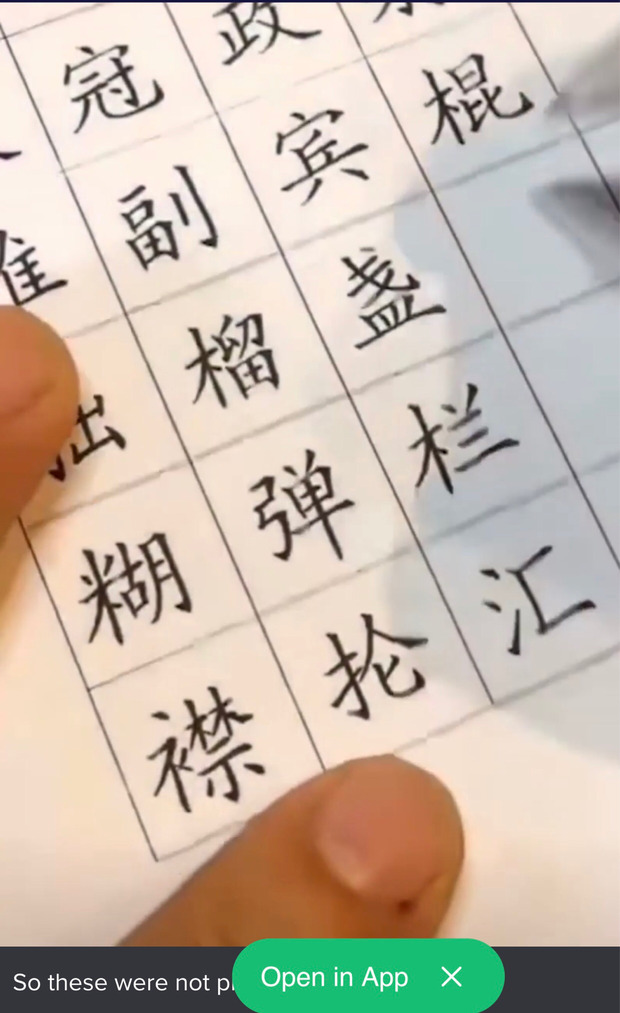 冠 政
副 宾 棍
榴 盏
糊 弹 栏
襟 抡 汇
So these were not
Open in App